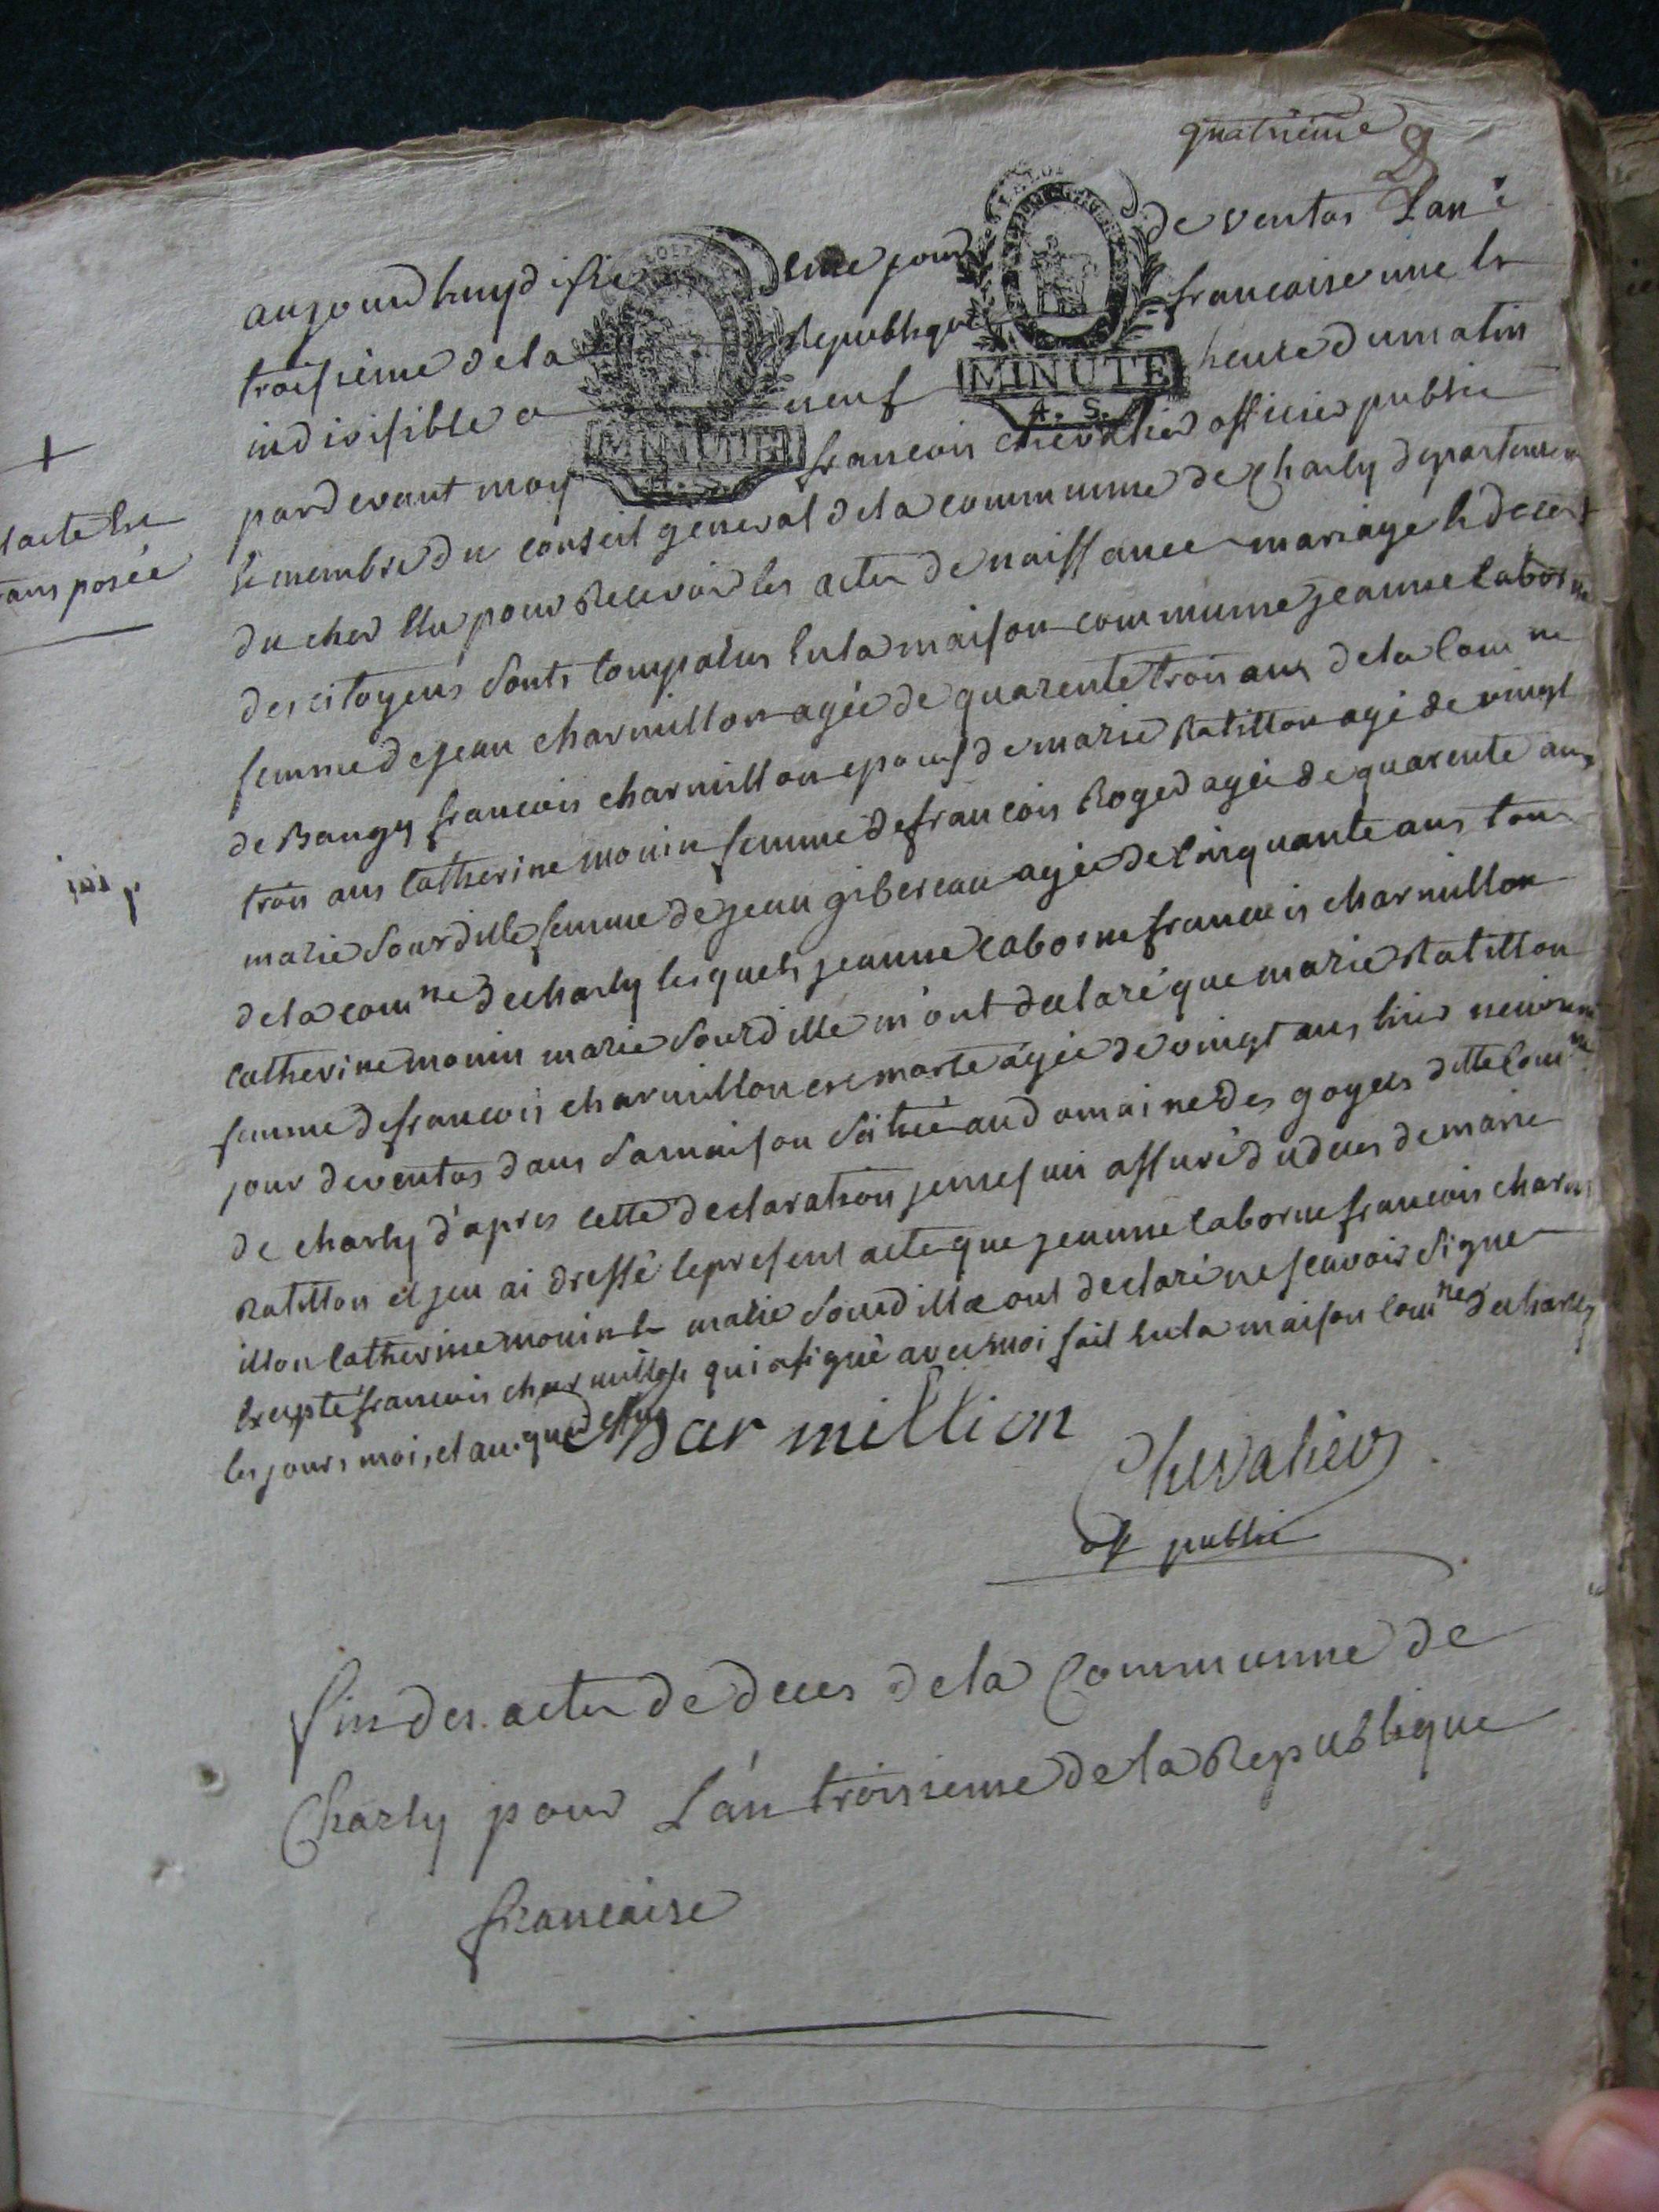 quatrieme
aujourdhuy disieme jour de ventos Lané
troisieme de la Republique francaise une et
indivisible a neuf heure du matin
MINUTE
MINUTE
A. S.
pardevant moy francois chevalier officier public
et membre du conseil general de la communne de charly departemen
du cher Elu pour Recevoir les actes de naissance mariage et deces
des citoyens sonts comparus en la maison communne jeanne laborne
femme de jean charmillon agée de quarente trois ans de la comne
de Baugy francois charmillon epoux de marie Ratillon agé de vingt
trois ans catherine monin femme de francois Roger agée de quarente ans
marie sourdille femme de jean gibereau agée de cinquante ans tous
de la comne de charly lesquels jeanne laborne francois charmillon
catherine monin marie sourdille m'ont declaré que marie Ratillon
femme de francois charmillon est morte agée de vingt ans hier neuvieme
jour de ventos dans sa maison sitüé au domaine des goyers ditte comne
de charly d'apres cette declaration je me suis assuré du deces de marie
Ratillon et j'en ai dressé le present acte que jeanne laborne francois charm
illon catherine monin et marie sourdille ont declaré ne scavoir signe
Excepté francois charmillon qui a signé avec moi fait en la maison comne de charly
les jours mois et an que dessus
Charmillion
Chevalier
off public
+
lacte est
rans posée
fin des actes de deces de la Communne de
Charly pour L'an troisieme de la Republique
francaise